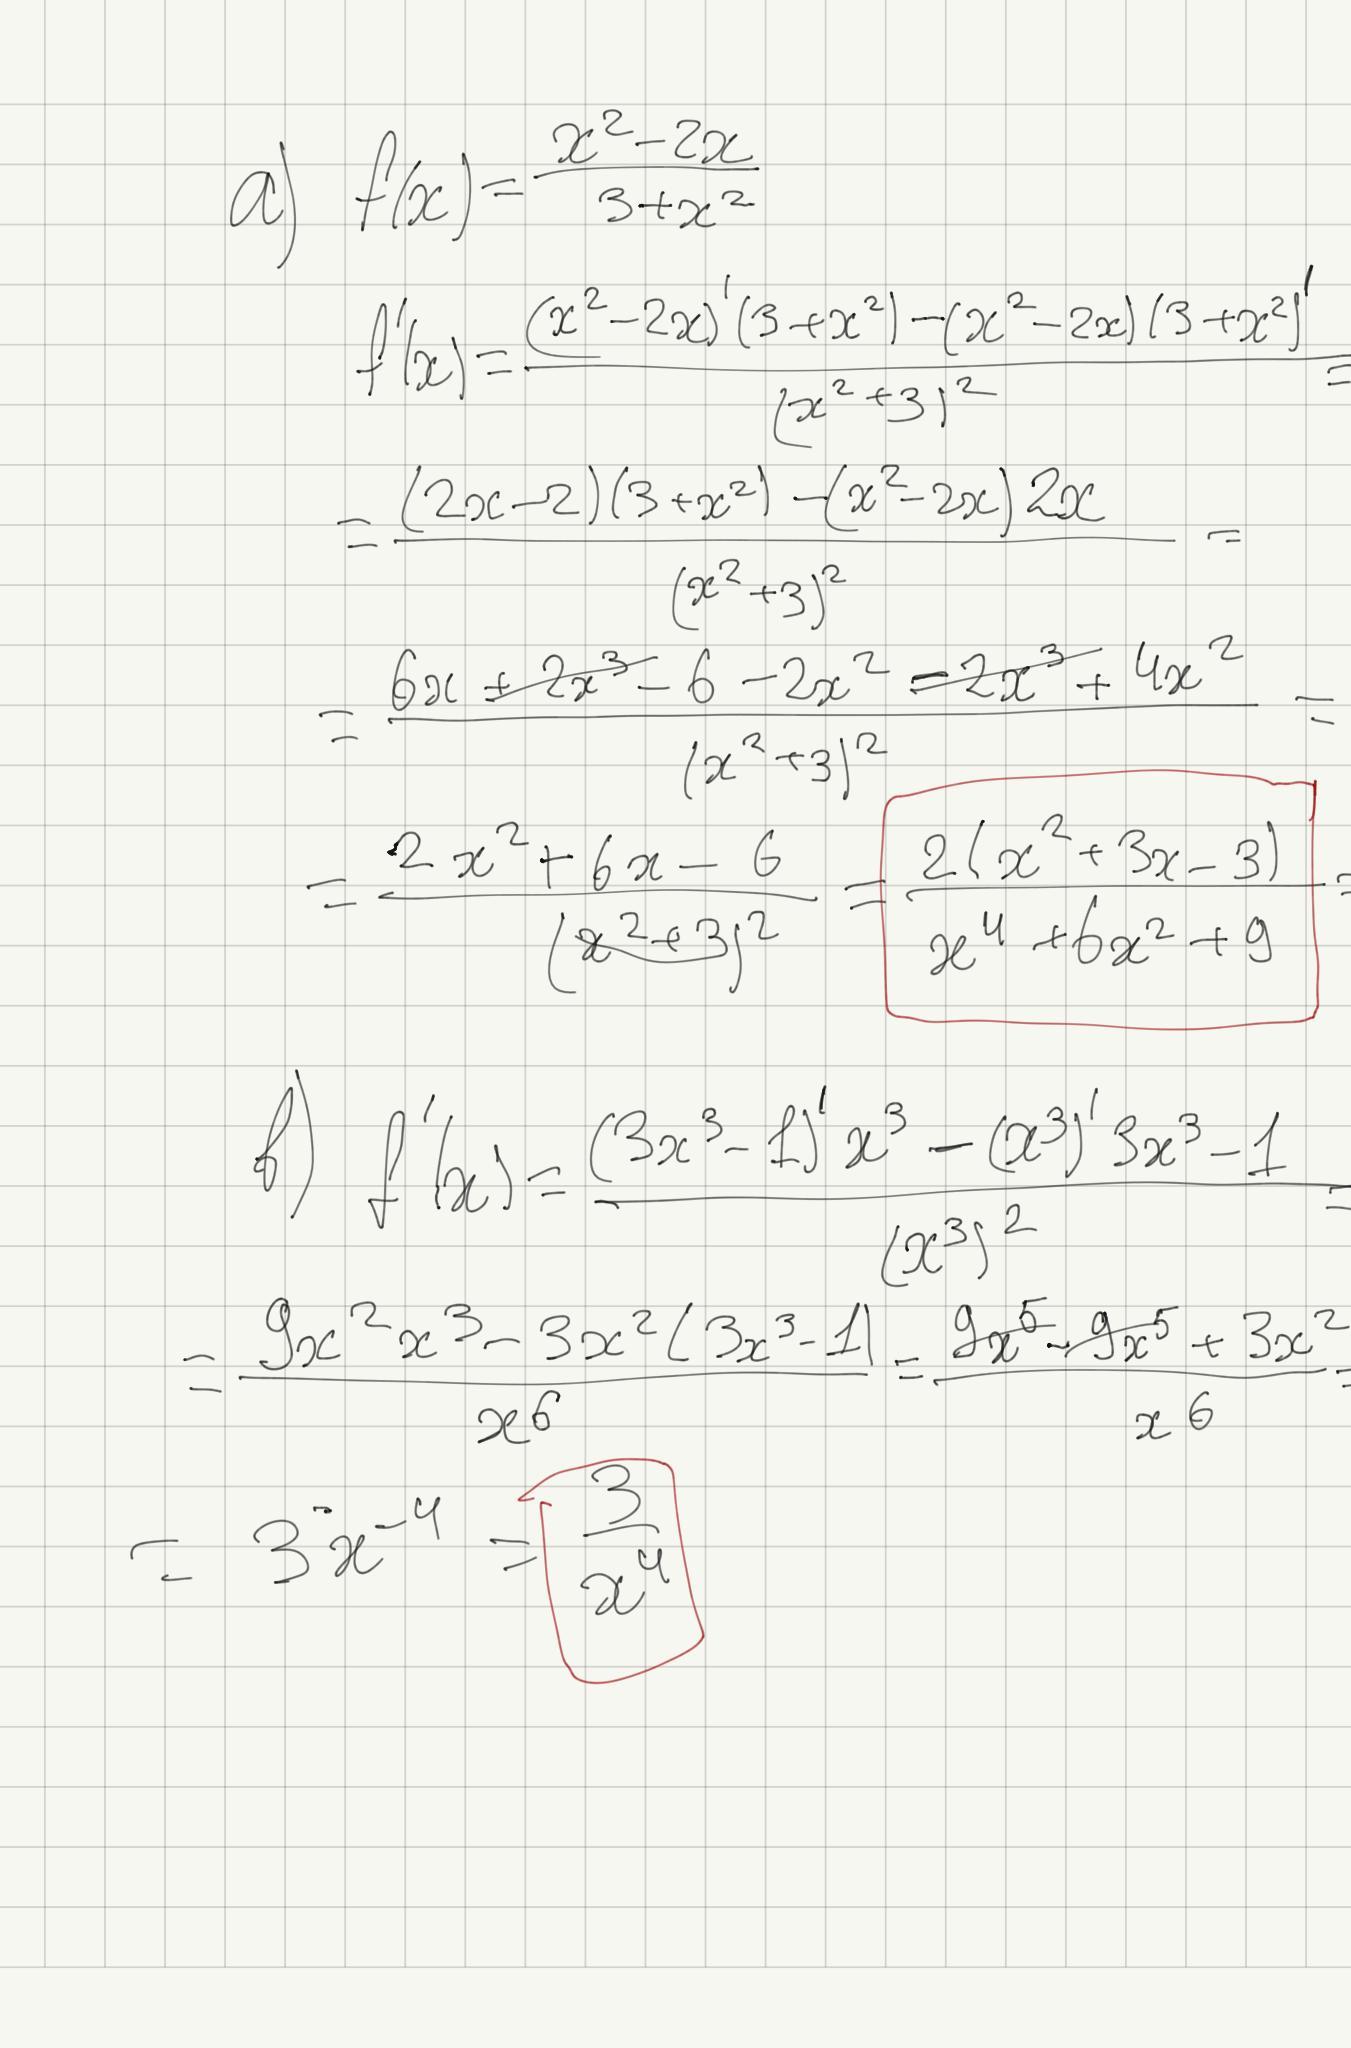 a) f(x) = (x² - 2x) / (3 + x²)
f'(x) = ((x² - 2x)' (3 + x²) - (x² - 2x) (3 + x²)') / (x² + 3)² =
= ((2x - 2)(3 + x²) - (x² - 2x) 2x) / (x² + 3)² =
= (6x + 2x³ - 6 - 2x² - 2x³ + 4x²) / (x² + 3)² =
= (2x² + 6x - 6) / (x² + 3)² = 2(x² + 3x - 3) / (x⁴ + 6x² + 9) =
в) f'(x) = ((3x³ - 1)' x³ - (x³)' 3x³ - 1) / (x³)² =
= (9x² x³ - 3x² (3x³ - 1)) / x⁶ = (9x⁵ - 9x⁵ + 3x²) / x⁶ =
= 3x⁻⁴ = 3 / x⁴